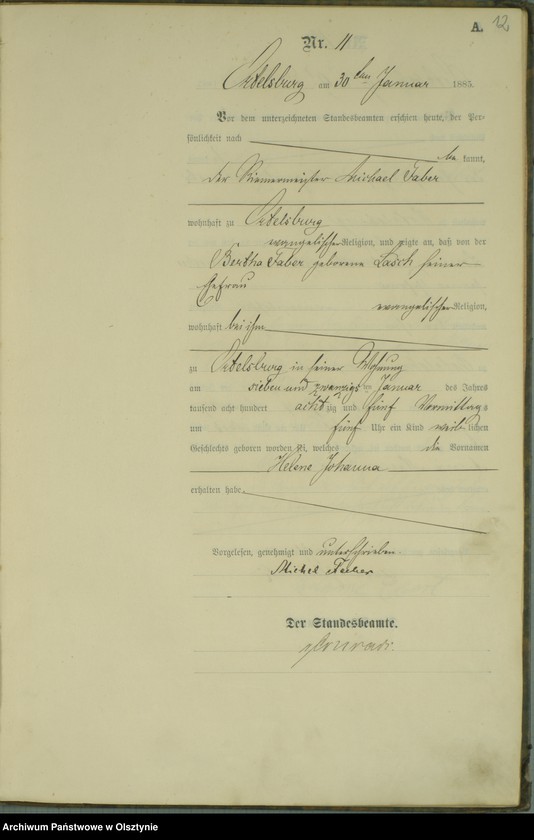 A. 12
Nr. 11
Ortelsburg am 30 ten Januar 1885.
Vor dem unterzeichneten Standesbeamten erschien heute, der Per-
sönlichkeit nach
be kannt,
der Riemermeister Michael Faber
wohnhaft zu Ortelsburg
evangelischer Religion, und zeigte an, daß von der
Bertha Faber geborene Lasch seiner
Ehefrau
evangelischer Religion,
wohnhaft bei ihm
zu Ortelsburg in seiner Wohnung
am sieben und zwanzigs ten Januar des Jahres
tausend acht hundert acht zig und fünf Vormittags
um fünf Uhr ein Kind weib lichen
Geschlechts geboren worden sei, welches die Vornamen
Helene Johanna
erhalten habe.
Vorgelesen, genehmigt und unterschrieben
Michel Faber
Der Standesbeamte.
Archiwum Państwowe w Olsztynie